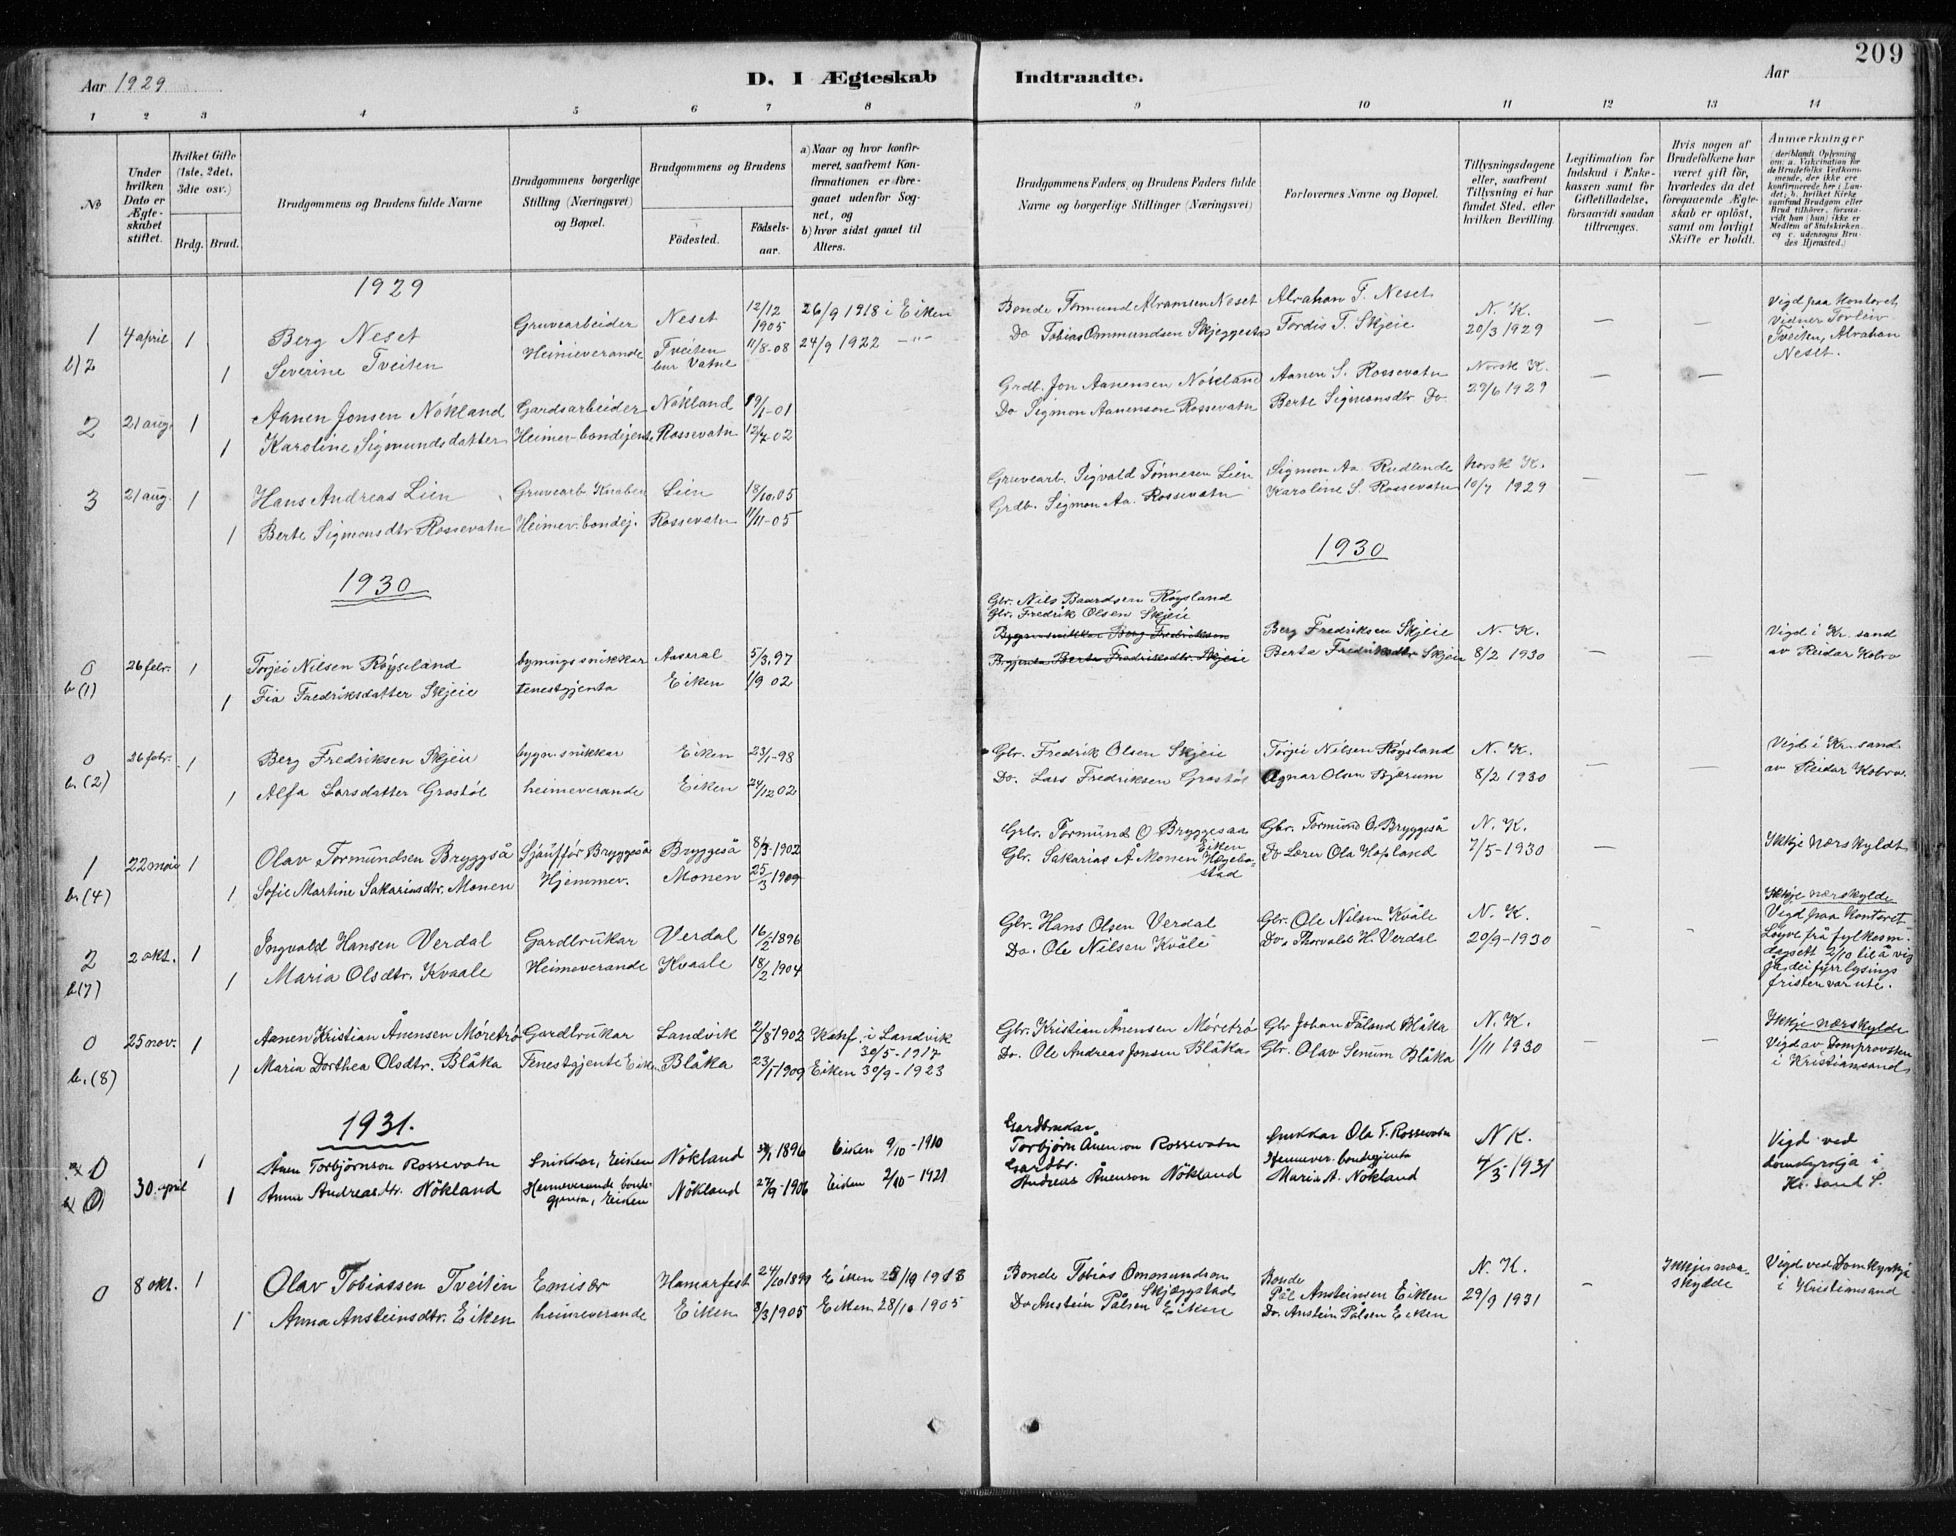 209
Aar 1929
D. I Ægteskab Indtraadte.
Aar
1 2 3 4 5 6 7 8 9 10 11 12 13 14
№
Under hvilken Dato er Ægteskabet stiftet.
Hvilket Gifte (1ste, 2det, 3die osv.)
Brdg. Brud.
Brudgommens og Brudens fulde Navne
Brudgommens borgerlige Stilling (Næringsvei) og Bopæl.
Brudgommens og Brudens
Fødested.
Fødselsaar.
a) Naar og hvor konfirmeret, saafremt Konfirmationen er foregaaet udenfor Sognet, og
b) hvor sidst gaaet til Alters.
Brudgommens Faders, og Brudens Faders fulde Navne og borgerlige Stillinger (Næringsvei)
Forlovernes Navne og Bopæl.
Tillysningsdagene eller, saafremt Tillysning ei har fundet Sted, efter hvilken Bevilling
Legitimation for Indskud i Enkekassen samt for Giftetilladelse, forsaavidt saadan tiltrænges.
Hvis nogen af Brudefolkene har været gift før, hvorledes da det foregaaende Ægteskab er opløst, samt om lovligt Skifte er holdt.
Anmærkninger
(deriblandt Oplysning om: a. Vakcination for de Brudefolks Vedkommende, der ikke ere konfirmerede her i Landet, b. hvilket Kirkesamfund Brudgom eller Brud tilhører, forsaavidt han (hun) ikke er Medlem af Statskirken og c. udensogns Brudes Hjemsted.)
1929
1 4 april 1 Berg Neset Gruvearbeider Neset 12/12 1905 26/9 1918 i Eiken Bonde Tormund Abramsen Neset Abrahan T. Neset N. K. — — Vigd paa Kontoret
b) 2 1 Severine Tveiten Heimeverande Tveiten bur Vatne 11/8-08 24/9 1922 -"- Do Tobias Ommundsen Skjeggestad Tordis T. Skjeie 20/3 1929 Vidner Torleiv Tveiten, Abrahan Neset.
2 21 aug. 1 Aanen Jonsen Nökland Gardsarbeider Nökland 19/1-01 Grdb. Jon Aanensen Nökland Aanen S. Rossevatn Norsk K. — —
1 Karoline Sigmundsdatter Heimev-bondejente Rossevatn 12/7-02 Do Sigmon Aanenson Rossevatn Berte Sigmonsdtr. Do 29/6 1929
3 21 aug. 1 Hans Andreas Lien Gruvearb. Knaben Lien 18/10.05 Gruvearb. Sigvald Tönnesen Lien Sigmon Aa. Rudlende Norsk K. — —
1 Berte Sigmonsdtr Rossevatn Heimev. bondej. Rossevatn 11/11-05 Grdb. Sigmon Aa. Rossevatn Karoline S. Rossevatn 10/7 1929
1930
1930
Gbr. Nils Baardsen Röysland
Gbr. Fredrik Olsen Skjeie
0 26 febr. 1 Torjei Nilsen Röyseland bygnings snikkar Aaseral 5/3.97 Bygn.snikkar Berg Fredriksen Berg Fredriksen Skjeie N. K. — Vigd i Kr. sand
b. (1) 1 Fia Fredriksdatter Skjeie tenestgjenta Eiken 1/9 02 Berta Fredriksdtr. Skjeie Berta Fredriksdtr Skjeie 8/2 1930 av Reidar Kobro
0 26 febr. 1 Berg Fredriksen Skjeie bygn.snikkar Eiken 23/1-98 Gbr. Fredrik Olsen Skjeie Torjei Nilsen Röysland N. K. — — Vigd i Kr. sand
b. (2) 1 Alfa Larsdatter Grostöl heimeverande Eiken 24/12 02 Do. Lars Fredriksen Grostöl Agnar Olsen Bjærum 8/2 1930 av Reidar Kobro.
1 22 mai 1 Olav Tormundsen Bryggså Sjåufför Bryggeså Bryggeså 8/3-1902 Grbr. Tormund O Bryggesaa Eiken Gbr. Tormund O. Bryggeså N. K. — Ikkje nærskyldt
b. (4) 1 Sofie Martine Sakariasdtr. Monen Hjemmev. Monen 25/3 1909 Gbr. Sakarias Å Monen Hægebostad Do Lærer Ola Hofsland 7/5-1930
2 2 okt. 1 Ingvald Hansen Verdal Gardbrukar Verdal 16/2 1896 Gbr. Hans Olsen Verdal Gbr. Ole Nilsen Kvåle N. K. — — Ikkje nærskylde
b. (7) 1 Maria Olsdtr. Kvaale Heimeverande Kvaale 18/2 1904 Do. Ole Nilsen Kvåle Do. Thorvald H. Verdal 20/9-1930 Vigd paa Kontoret Löyve frå fylkesm. dagsett 2/10 til å vig fristen var ute.
0 25 nov. 1 Aanen Kristian Ånensen Möretrö Gardbrukar Landvik 2/8-1902 Konf. i Landvik 30/5-1917 Gbr. Kristian Ånensen Möretrö Gbr Johan Fåland Blåka N. K. — — Ikkje nærskylde
b. (8) 1 Maria Dorthea Olsdtr. Blåka Tenestgjente Eiken Blåka 23/1-1909 Eiken 30/9-1923 Do. Ole Andreas Jonsen Blåka Gbr. Olav Senum Blåka 1/11 1930 Vigd av Domprovsten i Kristiansand
1931.
0 30. april 1 Ånen Torbjörnson Rossevatn Snikkar, Eiken Nökland 1896 Eiken 9/10-1910 Gardbrukar Torbjörn Ånenson Rossevatn Snikkar Ola T. Rossevatn N K. Vigd ved domkyrkja i Kr. sand S.
0 1 Anna Andreasdtr. Nökland Heimeverande bondegjenta, Eiken Nökland 27/9-1906 Eiken 2/10-1921 Gardbr. Andreas Ånenson Nökland Hemmever. bondegjenta Maria A. Nökland 4/3-1931
0 8 okt. 1 Olav Tobiassen Tveiten Emisær Hamarfest 24/10 1899 Eiken 1913 Bonde Tobias Ommundson Skjæggstad Bonde Pål Ansteinsen Eiken N. K. — Ikkje næskylde Vigd ved Domkyrkja i Kristiansand
1 Anna Ansteinsdtr. Eiken heimeverande Eiken 3/3 1905 Eiken 28/10 1905 Do Anstein Pålsen Eiken Do. Anstein Pålsen Eiken 29/9 1931